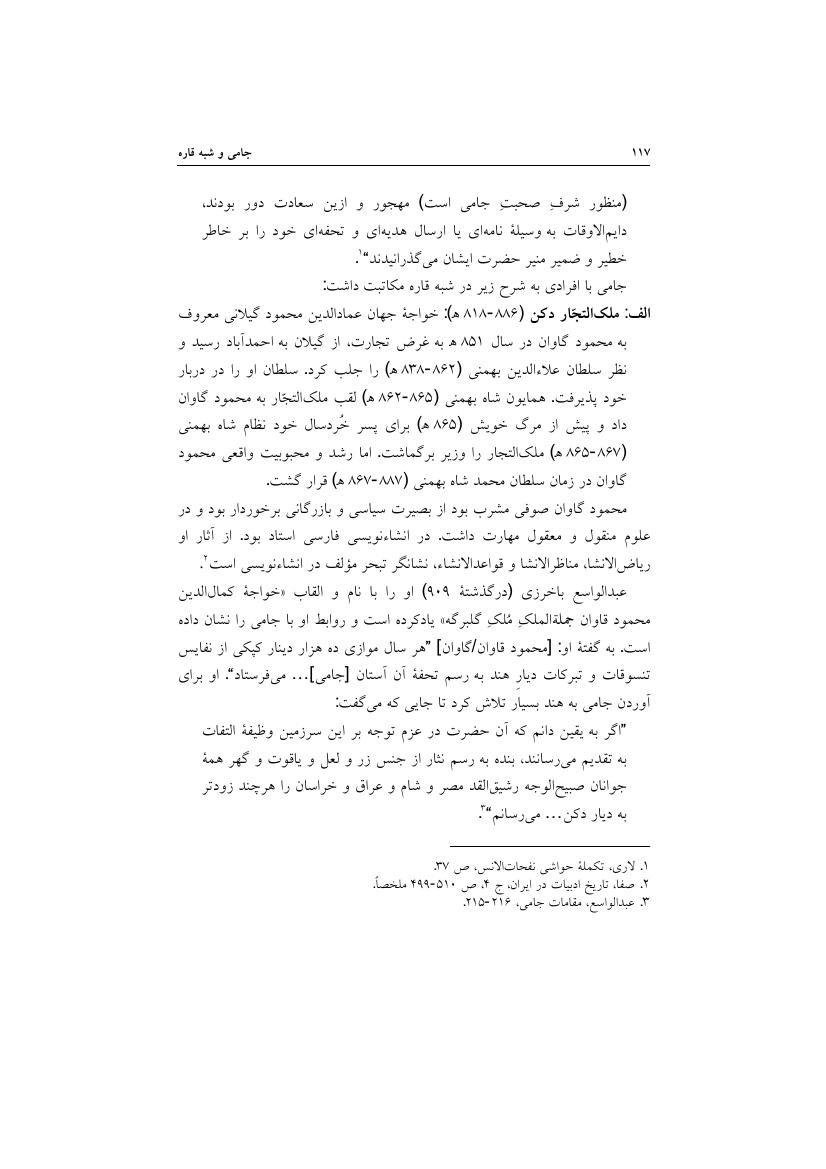 ۱۱۷ جامی و شبه قاره
(منظور شرفِ صحبتِ جامی است) مهجور و ازین سعادت دور بودند،
دایم‌الاوقات به وسیلهٔ نامه‌ای یا ارسال هدیه‌ای و تحفه‌ای خود را بر خاطر
خطیر و ضمیر منیر حضرت ایشان می‌گذرانیدند“۱.
جامی با افرادی به شرح زیر در شبه قاره مکاتبت داشت:
الف: ملک‌التجّار دکن (۸۸۶-۸۱۸ ﻫ): خواجهٔ جهان عمادالدین محمود گیلانی معروف
به محمود گاوان در سال ۸۵۱ ﻫ به غرض تجارت، از گیلان به احمدآباد رسید و
نظر سلطان علاءالدین بهمنی (۸۶۲-۸۳۸ ﻫ) را جلب کرد. سلطان او را در دربار
خود پذیرفت. همایون شاه بهمنی (۸۶۵-۸۶۲ ﻫ) لقب ملک‌التجّار به محمود گاوان
داد و پیش از مرگ خویش (۸۶۵ ﻫ) برای پسر خُردسال خود نظام شاه بهمنی
(۸۶۷-۸۶۵ ﻫ) ملک‌التجار را وزیر برگماشت. اما رشد و محبوبیت واقعی محمود
گاوان در زمان سلطان محمد شاه بهمنی (۸۸۷-۸۶۷ ﻫ) قرار گشت.
محمود گاوان صوفی مشرب بود از بصیرت سیاسی و بازرگانی برخوردار بود و در
علوم منقول و معقول مهارت داشت. در انشاءنویسی فارسی استاد بود. از آثار او
ریاض‌الانشا، مناظرالانشا و قواعدالانشاء، نشانگر تبحر مؤلف در انشاءنویسی است۲.
عبدالواسع باخرزی (درگذشتهٔ ۹۰۹) او را با نام و القاب «خواجهٔ کمال‌الدین
محمود قاوان جملةالملکِ مُلکِ گلبرگه» یادکرده است و روابط او با جامی را نشان داده
است. به گفتهٔ او: [محمود قاوان/گاوان] ”هر سال موازی ده هزار دینار کپکی از نفایس
تنسوقات و تبرکات دیارِ هند به رسم تحفهٔ آن آستان [جامی]... می‌فرستاد“. او برای
آوردن جامی به هند بسیار تلاش کرد تا جایی که می‌گفت:
”اگر به یقین دانم که آن حضرت در عزم توجه بر این سرزمین وظیفهٔ التفات
به تقدیم می‌رسانند، بنده به رسم نثار از جنس زر و لعل و یاقوت و گهر همهٔ
جوانان صبیح‌الوجه رشیق‌القد مصر و شام و عراق و خراسان را هرچند زودتر
به دیار دکن... می‌رسانم“۳.
۱. لاری، تکملهٔ حواشی نفحات‌الانس، ص ۳۷.
۲. صفا، تاریخ ادبیات در ایران، ج ۴، ص ۵۱۰-۴۹۹ ملخصاً.
۳. عبدالواسع، مقامات جامی، ۲۱۶-۲۱۵.